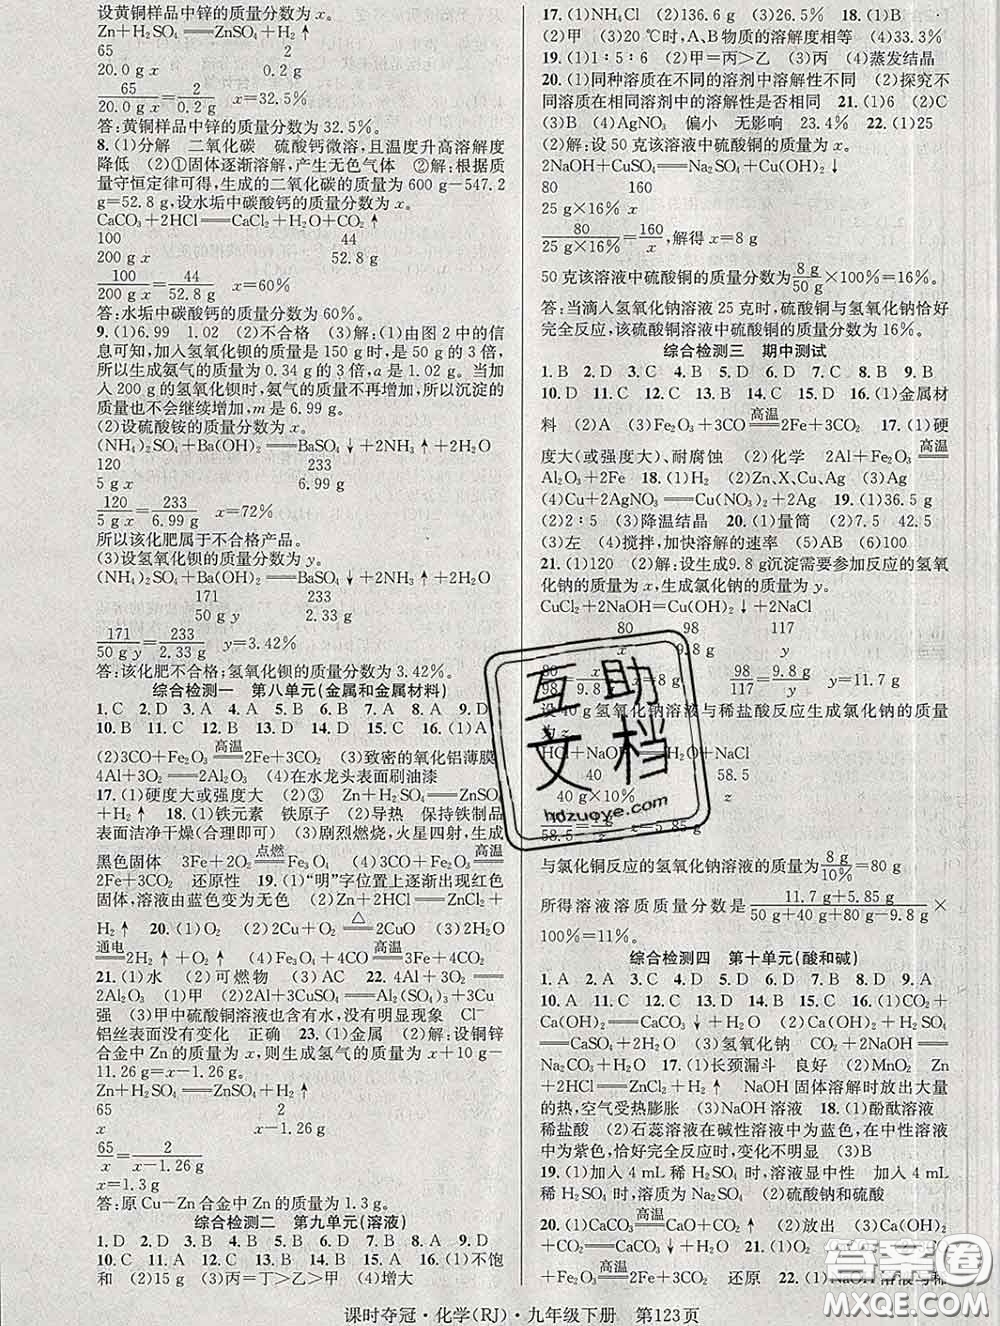 设黄铜样品中锌的质量分数为x。
Zn+H₂SO₄══ZnSO₄+H₂↑
65 2
20.0 g x 0.2 g
65/20.0 g x=2/0.2 g x=32.5%
答:黄铜样品中锌的质量分数为32.5%。
8.(1)分解 二氧化碳 硫酸钙微溶,且温度升高溶解度
降低 (2)①固体逐渐溶解,产生无色气体 ②解:根据质
量守恒定律可得,生成的二氧化碳的质量为600 g-547.2 g
=52.8 g,设水垢中碳酸钙的质量分数为x。
CaCO₃+2HCl══CaCl₂+H₂O+CO₂↑
100 44
200 g x 52.8 g
100/200 g x=44/52.8 g x=60%
答:水垢中碳酸钙的质量分数为60%。
9.(1)6.99 1.02 (2)不合格 (3)解:(1)由图2中的信
息可知,加入氢氧化钡的质量是150 g时,是50 g的3倍,
所以生成氨气的质量为0.34 g的3倍,a是1.02 g。当加
入200 g的氢氧化钡时,氨气的质量不再增加,所以沉淀的
质量也不会继续增加,m是6.99 g。
(2)设硫酸铵的质量分数为x。
(NH₄)₂SO₄+Ba(OH)₂══BaSO₄↓+2NH₃↑+2H₂O
120 233
5 g x 6.99 g
120/5 g x=233/6.99 g x=72%
所以该化肥属于不合格产品。
(3)设氢氧化钡的质量分数为y。
(NH₄)₂SO₄+Ba(OH)₂══BaSO₄↓+2NH₃↑+2H₂O
171 233
50 g y 2.33 g
171/50 g y=233/2.33 g y=3.42%
答:该化肥不合格;氢氧化钡的质量分数为3.42%。
综合检测一 第八单元(金属和金属材料)
1.C 2.D 3.C 4.B 5.D 6.A 7.C 8.A 9.D
10.B 11.C 12.B 13.C 14.A 15.C 16.(1)A
(2)3CO+Fe₂O₃高温══2Fe+3CO₂ (3)致密的氧化铝薄膜
4Al+3O₂══2Al₂O₃ (4)在水龙头表面刷油漆
17.(1)硬度大或强度大 (2)③ Zn+H₂SO₄══ZnSO₄
+H₂↑ 18.(1)铁元素 铁原子 (2)导热 保持铁制品
表面洁净干燥(合理即可) (3)剧烈燃烧,火星四射,生成
黑色固体 3Fe+2O₂点燃══Fe₃O₄ 4CO+Fe₃O₄高温══
3Fe+4CO₂ 还原性 19.(1)“明”字位置上逐渐出现红色
固体,溶液由蓝色变为无色 (2)Zn+2HCl══ZnCl₂+
H₂↑ 20.(1)O₂ (2)2Cu+O₂△══2CuO (3)2H₂O
通电══2H₂↑+O₂↑ (4)3CO+Fe₂O₃高温══2Fe+3CO₂
21.(1)水 (2)可燃物 (3)CO₂ 22.
(3)(1)甲 (2)2Al+3CuSO₄══Al₂(SO₄)₃+3Cu
强 (3)甲中硫酸铜溶液也含有水,没有明显现象 Cl⁻
铝丝表面没有变化 正确 23.(1)金属 (2)解:设铜锌
合金中Zn的质量为x,则生成氢气的质量为x+10 g-
11.26 g=x-1.26 g。
Zn+H₂SO₄══ZnSO₄+H₂↑
65 2
x x-1.26 g
65/x=2/(x-1.26 g)
x=1.3 g
答:原Cu-Zn合金中Zn的质量为1.3 g。
综合检测二 第九单元(溶液)
1.D 2.D 3.C 4.D 5.A 6.B 7.D 8.D 9.D
10.C 11.C 12.A 13.A 14.B 15.A 16.(1)不饱
和 (2)15 g (3)丙=丁>乙>甲 (4)增大
17.(1)NH₄Cl (2)136.6 g (3)26.5% 18.(1)B
(2)甲 (3)20 ℃时,A、B物质的溶解度相等 (4)33.3%
19.(1)1∶5∶6 (2)甲=丙>乙 (3)丙 (4)蒸发结晶
20.(1)同种溶质在不同的溶剂中溶解性不同 (2)探究不
同溶质在相同溶剂中的溶解性是否相同 21.(1)6 (2)C
(3)B (4)AgNO₃ 偏小 无影响 23.4% 22.(1)25
(2)解:设50克该溶液中硫酸铜的质量为x。
2NaOH+CuSO₄══Na₂SO₄+Cu(OH)₂↓
80 160
25 g×16% x
80/25 g×16%=160/x,解得x=8 g
50克该溶液中硫酸铜的质量分数为8 g/50 g×100%=16%。
答:当滴入氢氧化钠溶液25克时,硫酸铜与氢氧化钠恰好
完全反应,该硫酸铜溶液中硫酸铜的质量分数为16%。
综合检测三 期中测试
1.B 2.D 3.C 4.B 5.D 6.C 7.D 8.C 9.D
10.D 11.C 12.C 13.A 14.D 15.D 16.(1)金属材
料 (2)A (3)Fe₂O₃+3CO高温══2Fe+3CO₂ 17.(1)硬
度大(或强度大)、耐腐蚀 (2)化学 2Al+Fe₂O₃高温══
Al₂O₃+2Fe 18.(1)H₂ (2)Zn、X、Cu、Ag (3)Ag
(4)Cu+2AgNO₃══Cu(NO₃)₂+2Ag 19.(1)36.5 g
(2)2∶5 (3)降温结晶 20.(1)量筒 (2)7.5 42.5
(3)左 (4)搅拌,加快溶解的速率 (5)AB (6)100
21.(1)120 (2)解:设生成9.8 g沉淀需要参加反应的氢氧
化钠的质量为x,生成氯化钠的质量为y。
CuCl₂+2NaOH═Cu(OH)₂↓+2NaCl
80 98 117
x 9.8 g y
80/98=x/9.8 g x=8 g 98/117=9.8 g/y y=11.7 g
设40 g氢氧化钠溶液与稀盐酸反应生成氯化钠的质量
为z
HCl+NaOH══H₂O+NaCl
40 58.5
40 g×10% z
z=5.85 g
与氯化铜反应的氢氧化钠溶液的质量为8 g/10%=80 g
所得溶液溶质质量分数是(11.7 g+5.85 g)/(50 g+40 g+80 g-9.8 g)×
100%=11%。
综合检测四 第十单元(酸和碱)
1.A 2.A 3.C 4.D 5.D 6.D 7.D 8.D 9.A
10.A 11.C 12.A 13.D 14.C 15.A 16.(1)CO₂+
Ca(OH)₂══CaCO₃↓+H₂O (2)Ca(OH)₂+H₂SO₄══
CaSO₄+2H₂O (3)氢氧化钠 CO₂+2NaOH══
Na₂CO₃+H₂O 17.(1)长颈漏斗 良好 (2)MnO₂ Zn+
2HCl══ZnCl₂+H₂↑ NaOH固体溶解时放出大量
的热,空气受热膨胀 (3)NaOH溶液 18.(1)酚酞溶液
稀盐酸 (2)石蕊溶液在碱性溶液中为蓝色,在中性溶液
中为紫色,恰好完全反应时,变化不明显 (3)B
19.(1)加入4 mL稀H₂SO₄时,溶液显中性 加入4 mL
稀H₂SO₄时,溶质为Na₂SO₄ (2)硫酸钠和硫酸
20.(1)CaCO₃高温══CaO+CO₂↑ (2)放出 (3)Ca(OH)₂
+CO₂══CaCO₃↓+H₂O 21.(1)
3CO+Fe₂O₃高温══2Fe+3CO₂ 还原 (2)
课时夺冠·化学(RJ)·九年级下册 第123页
互助
文档
hdzuoye.com
答案圈
MXQE.COM